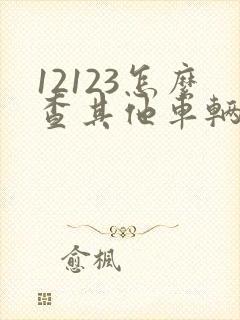 12123怎麽
查其他車輛
愈楓